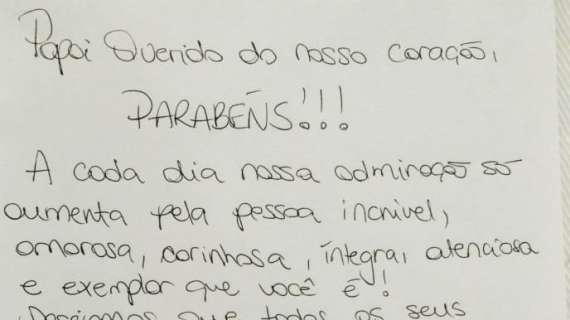 Papai Querido do nosso coração,
PARABÉNS!!!
A cada dia nossa admiração só
aumenta pela pessoa incrível,
amorosa, carinhosa, íntegra, atenciosa
e exemplar que você é!
Desejamos que todos os seus